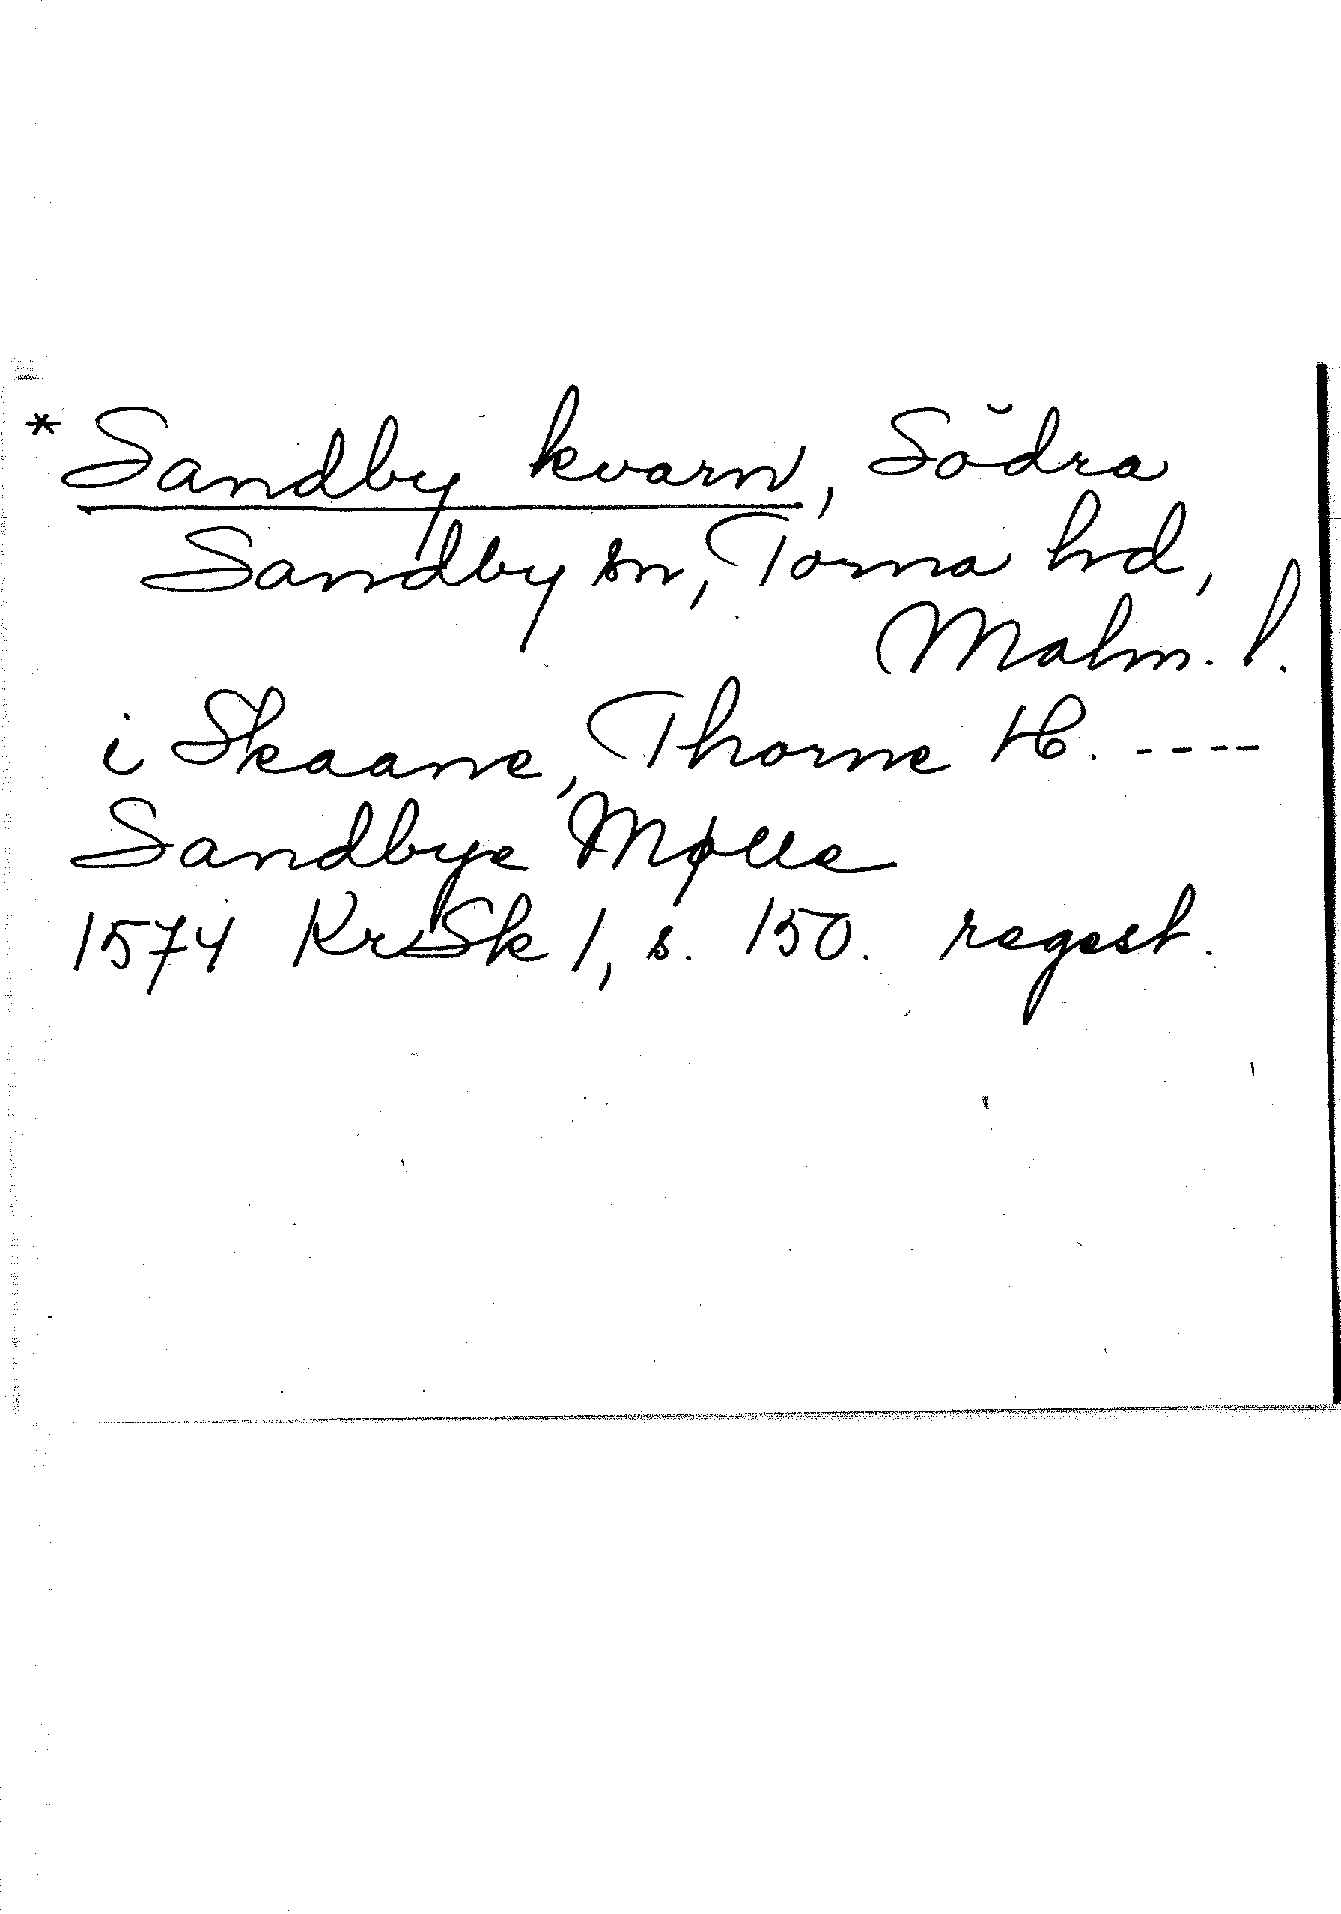 * Sandby kvarn, Södra
Sandby sn, Torna hd,
Malm. l.
i Skaane, Thorne H. ----
Sandbye Mølle
1574 KrSk 1, s. 150. regest.